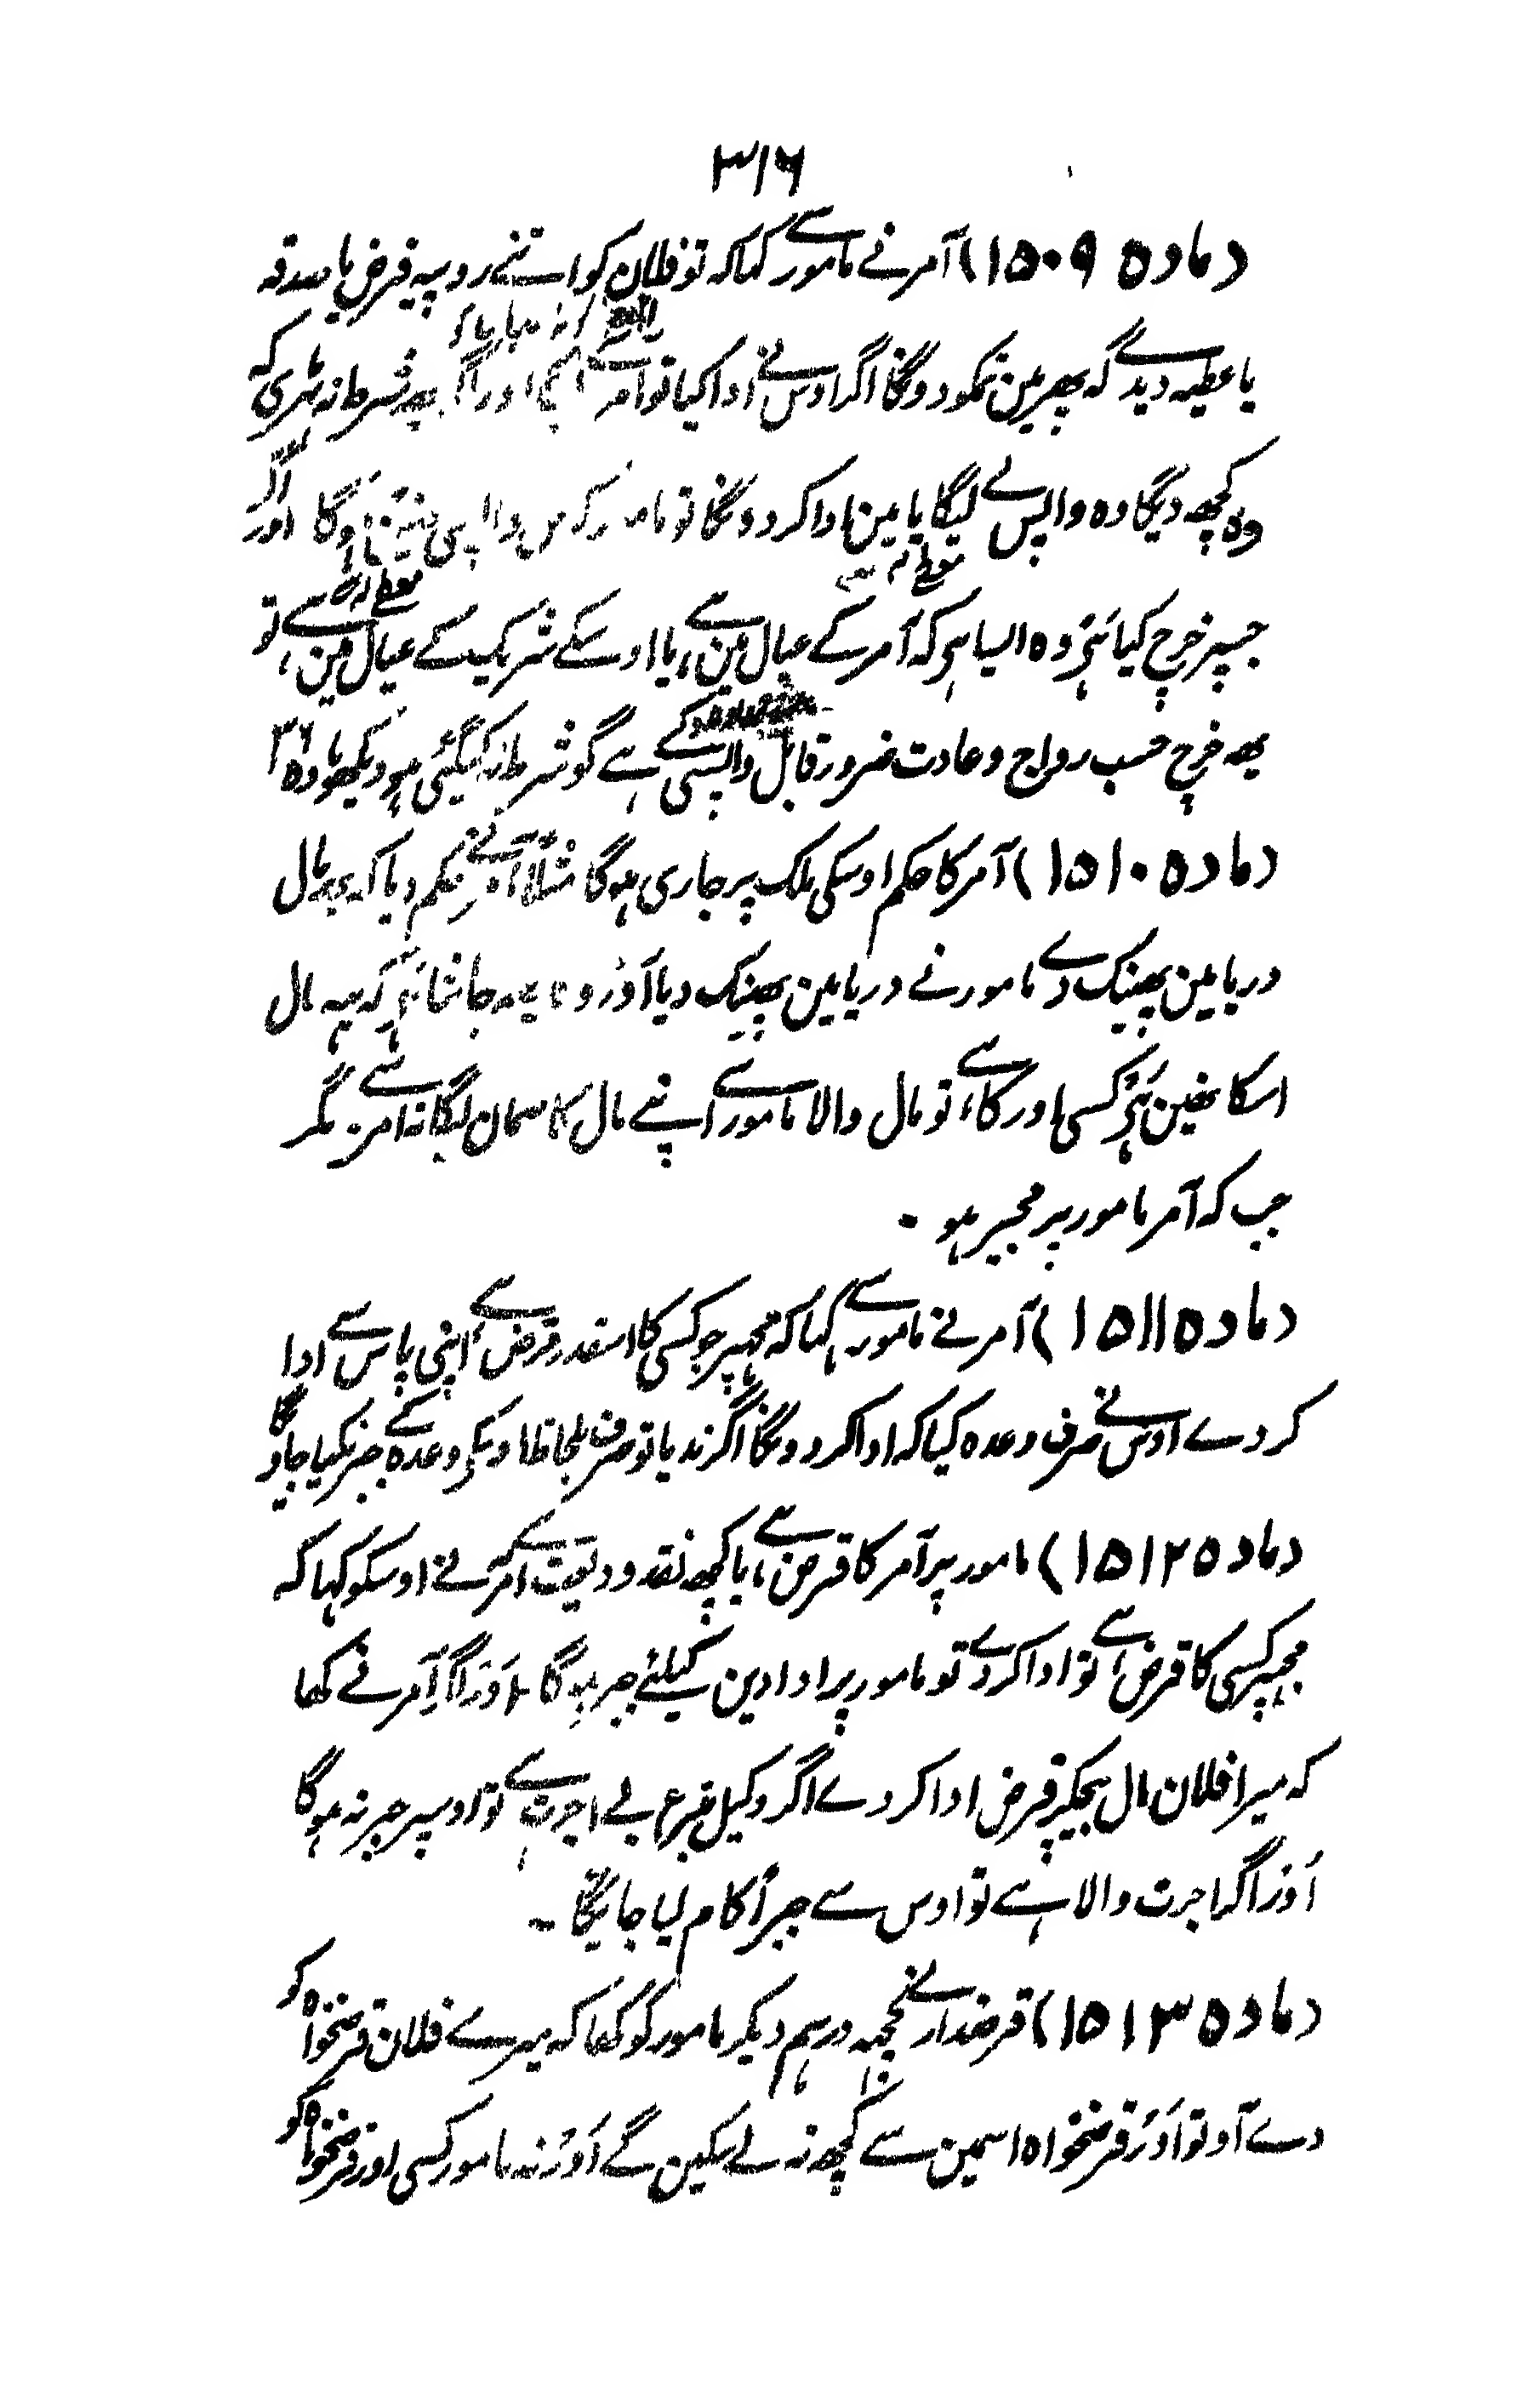 ۳۱۶
(مادہ ۱۵۰۹) آمر نے مامور سے کہا کہ تو فلان کو اتنے روپیہ قرض یا صدقہ
یا عطیہ دیدے گہ پھر مین تمکو دونگا اگر اوس نے ادا کیا تو آمر سے اور اگر یہہ شرط نہ ٹہری کہ
وہ کچھ دیگا وہ واپس لے لیگا یا مین ادا کر دونگا تو اور اگر
جسپر خرچ کیا ہَے وہ ایسا ہی کہ آمر کے عیال مین ہے، یا اوسکے شریک کے عیال مین ہے، تو
یھہ خرچ حسب رواج و عادت ضرور قابل واپسی کے ہے گو شرط نہ کیگئی ہو دیکھو مادہ ۳۶
(مادہ ۱۵۱۰) آمر کا حکم اوسکی ملک پر جاری ہوگا مثلاً آمر نے حکم دیا کہ یھہ مال
دریا مین پھینک دے مامور نے دریا مین پھینک دیا اَور وہ یہہ جانتا ہَے کہ یہہ مال
اسکا نھین ہَے کسی اور کا ہے، تو مال والا مامور سے اپنے مال کا ضمان لیگا نہ آمر سے۔ مگر
جب کہ آمر مامور پر مجبر ہو ۔
(مادہ ۱۵۱۱) آمر نے مامور سے کہا کہ مجھپر جو کسی کا اسقدر قرض ہے، اپنی پاس سے ادا
کر دے اوس نے صرف وعدہ کیا کہ ادا کر دونگا اگر ندیا تو صرف بلحاظ اوسکی وعدہ کے جبر نکیا جاویگا
(مادہ ۱۵۱۲) مامور پر آمر کا قرض ہے، یا کچھ نقد ودیعت ہے آمر نے اوسکو کہا کہ
مجھپر کسی کا قرض ہے تو ادا کر دے تو مامور پر ادا دین کیلئے جبر ہوگا۔ اَور اگر آمر نے کھا
کہ میرا فلان مال بیچکر قرض ادا کر دے اگر وکیل متبرع بے اجرت ہے تو اوسپر جبر نہ ہوگا
اَور اگر اجرت والا ہے تو اوس سے جبراً کام لیا جائیگا۔
(مادہ ۱۵۱۳) قرضدار نے کچھہ درہم دیکر مامور کو کھا کہ میرے فلان قرضخواہ کو
دے آو تو اَور قرضخواہ اسمین سے کچھ نہ لے سکین گے اَور نہ مامور کسی اور قرضخواہ کو